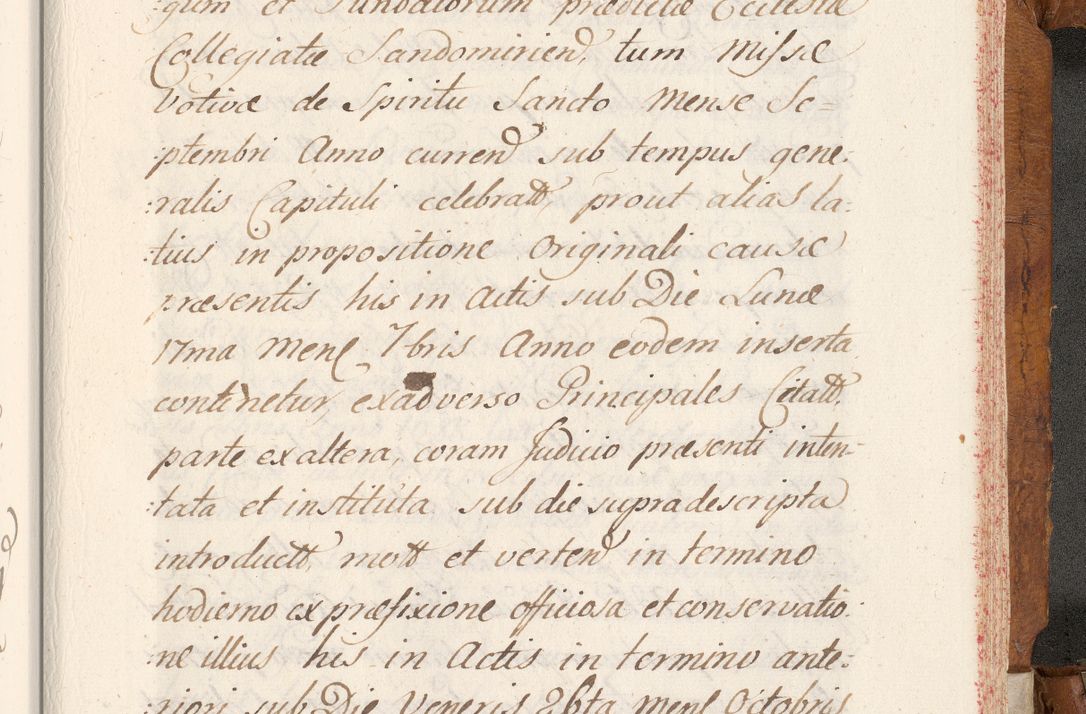 :gum et Fundatorum prædictæ Ecclesiæ
Collegiatæ Sandomirien, tum Missæ
Votivæ de Spiritu Sancto Mense Se=
:ptembri Anno curren sub tempus gene:
:ralis Capituli celebratt, prout alias la:
:tius in propositione Originali causæ
præsentis his in Actis sub Die Lunæ
17ma Mens 7bris Anno eodem inserta
continetur, ex adverso Principales Citatt,
parte ex altera, coram Judicio præsenti inten-
:tata et instituta sub die supradescripta
introductt, mott et verten in termino
hodierno ex præfixione officiosa et conservatio:
:ne illius his in Actis in termino ante:
:riori sub Die Veneris 26ta Mens Octobris